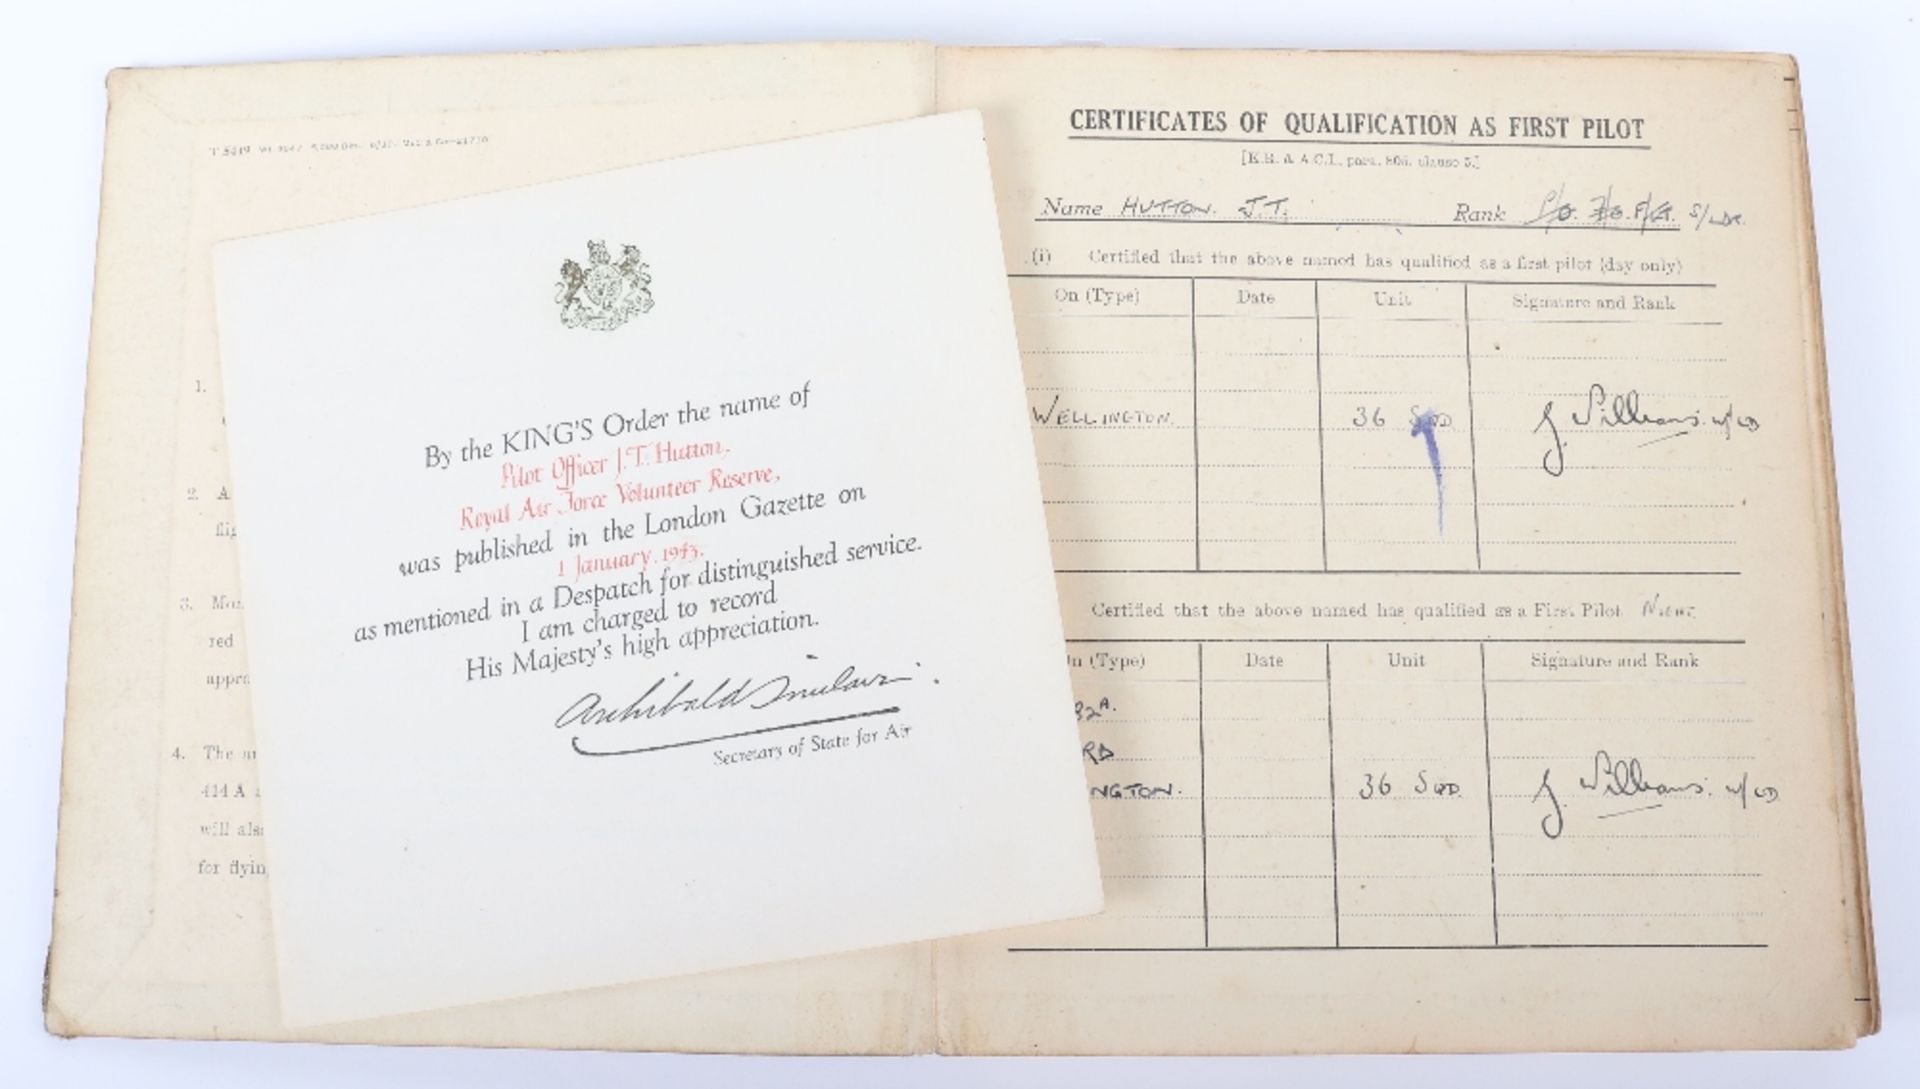 T 5419
1.
2. A
flig
3.
red
appro
4. The
414 A
will also
for flyin
By the KING'S Order the name of
Pilot Officer J.T. Hutton,
Royal Air Force Volunteer Reserve,
was published in the London Gazette on
1 January 1943.
as mentioned in a Despatch for distinguished service.
I am charged to record
His Majesty's high appreciation.
Archibald Sinclair
Secretary of State for Air
CERTIFICATES OF QUALIFICATION AS FIRST PILOT
[K.R. & A.C.I., para. 805, clause 5.]
Name HUTTON. J.T. Rank P/O. F/O. F/LT. S/LDR.
(i) Certified that the above named has qualified as a first pilot (day only)
On (Type) Date Unit Signature and Rank
WELLINGTON. 36 SQD J. Williams. W/CD
Certified that the above named has qualified as a First Pilot NIGHT
n (Type) Date Unit Signature and Rank
32A.
RD
NGTON. 36 SQD. J. Williams. W/CD